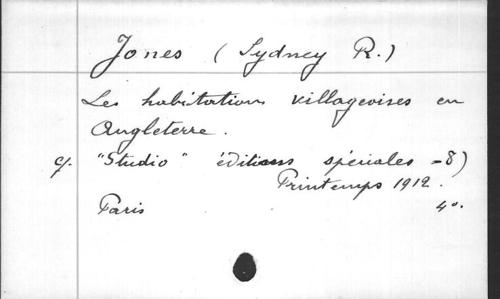 Jones (Sydney R.)
Les habitations villageoises en
Angleterre.
cf. "Studio" éditions spéciales -8)
Printemps 1912.
Paris 4°.